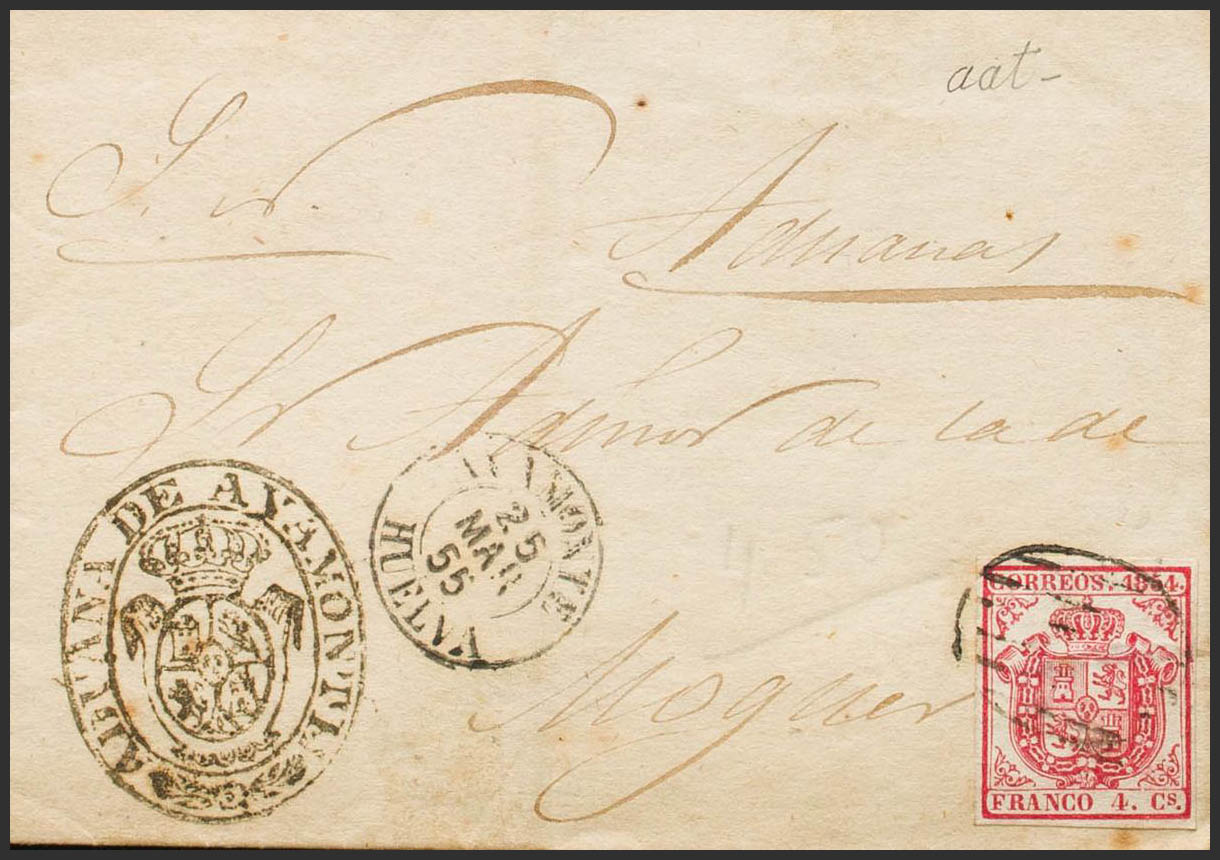 aat-
S. N.
Aduanas
Sr Admor de la de
Moguer
ADUANA DE AYAMONTE
AYAMONTE
25
MAR.
55
HUELVA
CORREOS. 1854.
FRANCO 4. Cs.